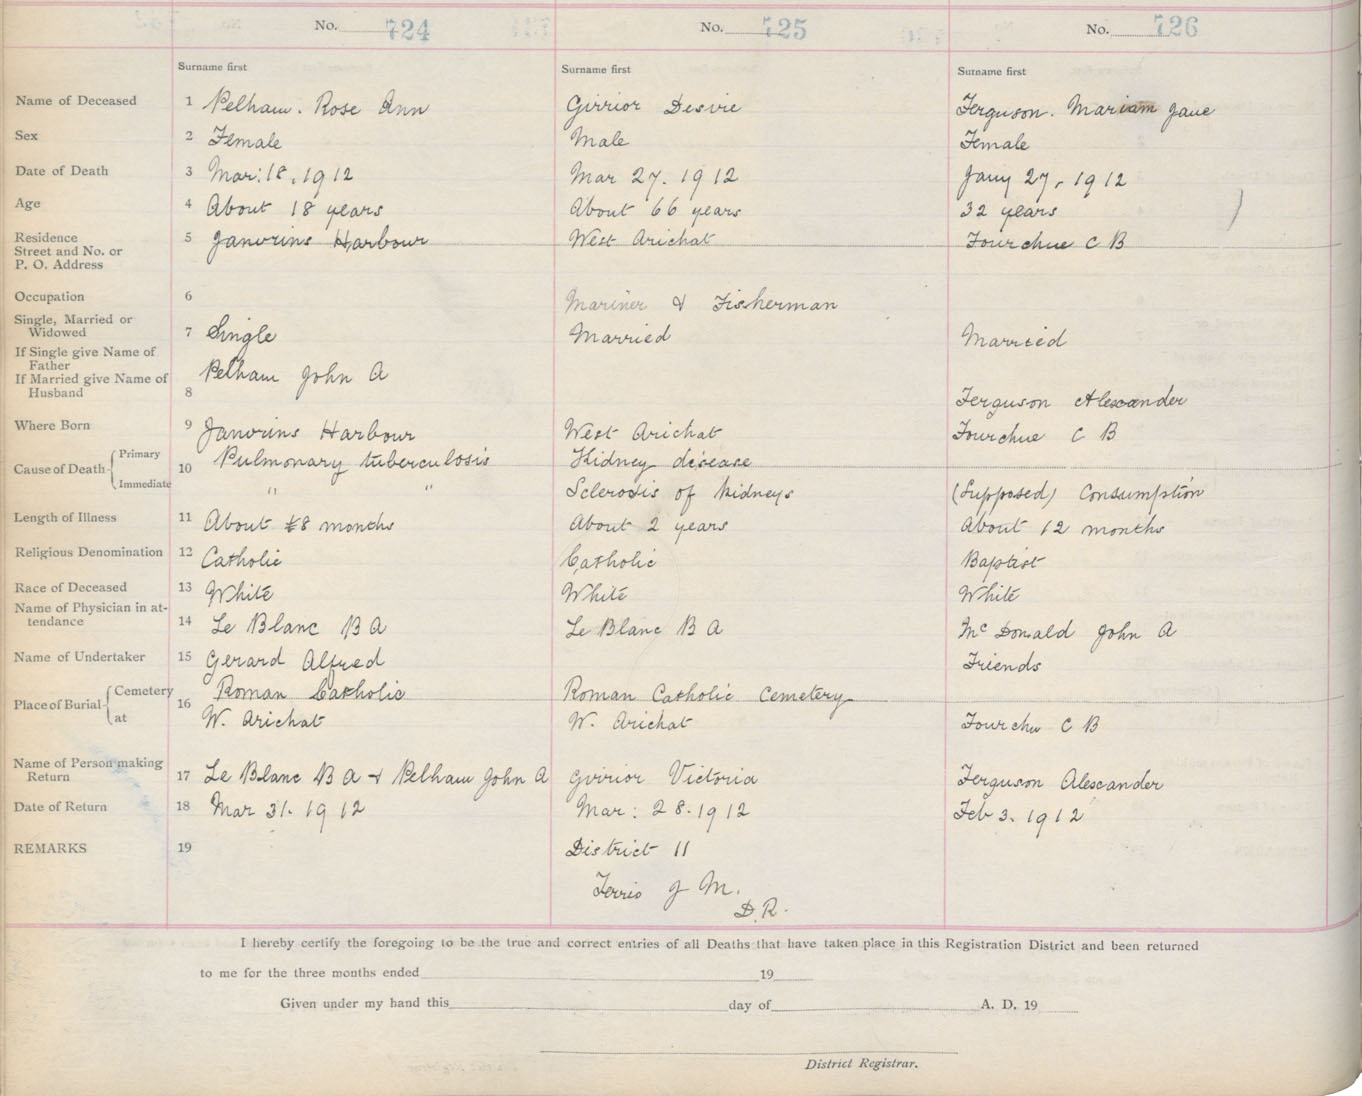 No. 724 No. 725 No. 726
Surname first Surname first Surname first
Name of Deceased 1 Pelham. Rose Ann Girrior Desire Ferguson. Mariam Jane
Sex 2 Female Male Female
Date of Death 3 Mar: 18. 1912 Mar 27. 1912 Jany 27, 1912
Age 4 About 18 years About 66 years 32 years
Residence 5 Janvrins Harbour West Arichat Fourchue C B
Street and No. or
P. O. Address
Occupation 6 Mariner & Fisherman
Single, Married or
Widowed 7 Single Married Married
If Single give Name of
Father Pelham John A
If Married give Name of
Husband 8 Ferguson Alexander
Where Born 9 Janvrins Harbour West Arichat Fourchue C B
Cause of Death Primary 10 Pulmonary tuberculosis Kidney disease
Immediate " " Sclerosis of kidneys (Supposed) Consumption
Length of Illness 11 About 8 months About 2 years About 12 months
Religious Denomination 12 Catholic Catholic Baptist
Race of Deceased 13 White White White
Name of Physician in at-
tendance 14 Le Blanc B A Le Blanc B A McDonald John A
Name of Undertaker 15 Gerard Alfred Friends
Place of Burial Cemetery 16 Roman Catholic Roman Catholic Cemetery
at W. Arichat W. Arichat Fourchu C B
Name of Person making
Return 17 Le Blanc B A & Pelham John A Girrior Victoria Ferguson Alexander
Date of Return 18 Mar 31. 1912 Mar: 28. 1912 Feb 3. 1912
REMARKS 19 District 11
Terrio J M.
D. R.
I hereby certify the foregoing to be the true and correct entries of all Deaths that have taken place in this Registration District and been returned
to me for the three months ended 19
Given under my hand this day of A. D. 19
District Registrar.